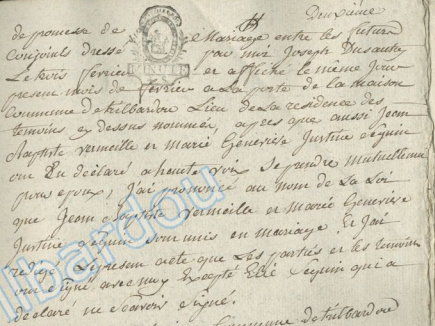 Deuxième
de promesse de Mariage entre les futurs
Conjoints dressé par moi Joseph Dusautoy
Le trois fevrier et affiché le même Jour
present mois de fevrier a La porte de la maison
Commune de trilbardou Lieu de La residence des
temoins cy dessus nommés, apres que aussi Jean
Baptiste Vermeille et Marie Genevieve Justine Seguin
ont Eu déclaré a haute voix se prendre mutuellement
pour epoux, J'ai prononcé au nom de La Loi
que Jean Baptiste Vermeille et Marie Genevieve
Justine Seguin sont unis en mariage Et J'ai
redigé Le present acte que Les parties et les temoins
ont signé avec moy Excepté Seguin qui a
déclaré ne scavoir signé.
Commune de trilbardou
libardou